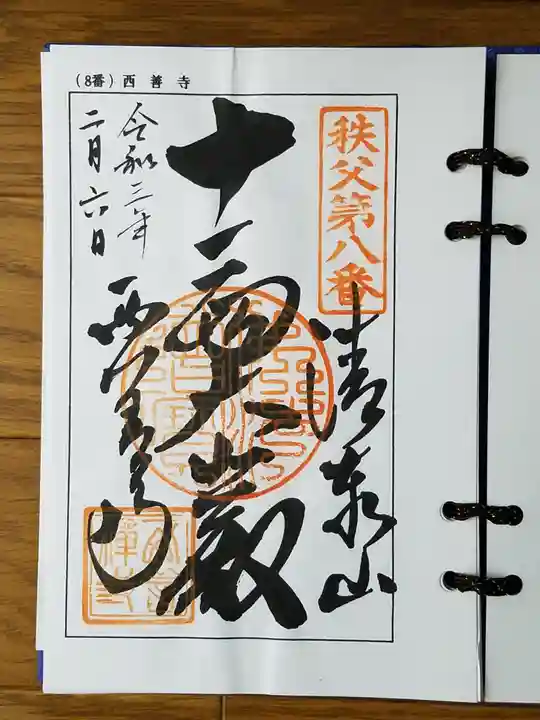 (8番)西善寺
秩父第八番
清泰山
十一面大悲殿
令和三年
二月六日
西善寺